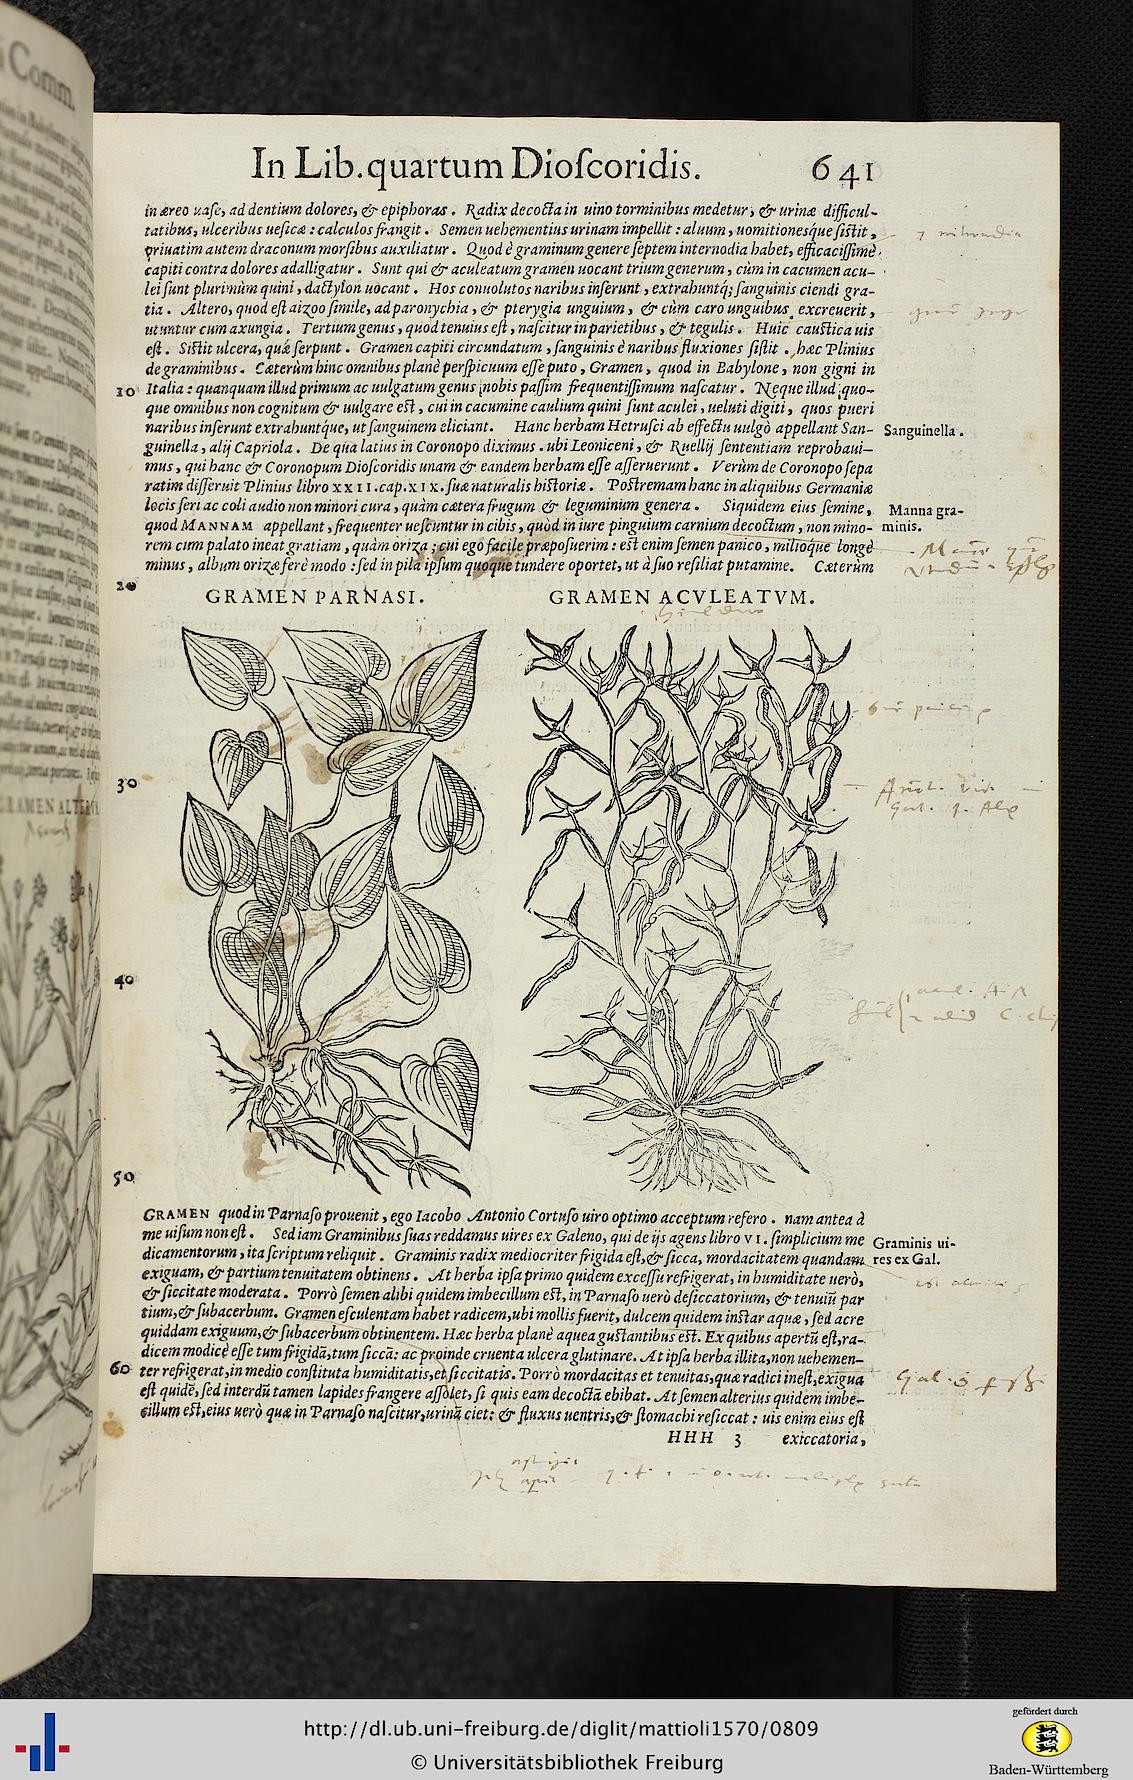 In Lib. quartum Dioſcoridis. 641
in æreo uaſe, ad dentium dolores, & epiphoras. Radix decocta in uino torminibus medetur, & urinæ difficul-
tatibus, ulceribus ueſicæ: calculos frangit. Semen uehementius urinam impellit: aluum, uomitionesq́ue ſiſtit,
priuatim autem draconum morſibus auxiliatur. Quod è graminum genere ſeptem internodia habet, efficaciſſimè
capiti contra dolores adalligatur. Sunt qui & aculeatum gramen uocant trium generum, cùm in cacumen acu-
lei ſunt plurimùm quini, dactylon uocant. Hos conuolutos naribus inſerunt, extrahuntq́; ſanguinis ciendi gra-
tia. Altero, quod eſt aizoo ſimile, ad paronychia, & pterygia unguium, & cùm caro unguibus excreuerit,
utuntur cum axungia. Tertium genus, quod tenuius eſt, naſcitur in parietibus, & tegulis. Huic cauſtica uis
eſt. Siſtit ulcera, quæ ſerpunt. Gramen capiti circundatum, ſanguinis è naribus fluxiones ſiſtit. hæc Plinius
de graminibus. Cæterùm hinc omnibus planè perſpicuum eſſe puto, Gramen, quod in Babylone, non gigni in
10 Italia: quanquam illud primum ac uulgatum genus nobis paſſim frequentiſſimum naſcatur. Neque illud quo-
que omnibus non cognitum & uulgare eſt, cui in cacumine caulium quini ſunt aculei, ueluti digiti, quos pueri
naribus inſerunt extrahuntq́ue, ut ſanguinem eliciant. Hanc herbam Hetruſci ab effectu uulgò appellant San-
Sanguinella.
guinella, alij Capriola. De qua latius in Coronopo diximus. ubi Leoniceni, & Ruellij ſententiam reprobaui-
mus, qui hanc & Coronopum Dioſcoridis unam & eandem herbam eſſe aſſeruerunt. Verùm de Coronopo ſepa
ratim diſſeruit Plinius libro XXII. cap. XIX. ſuæ naturalis hiſtoriæ. Poſtremam hanc in aliquibus Germaniæ
locis ſeri ac coli audio non minori cura, quàm cætera frugum & leguminum genera. Siquidem eius ſemine,
Manna gra-
quod MANNAM appellant, frequenter ueſcuntur in cibis, quòd in iure pinguium carnium decoctum, non mino-
minis.
rem cum palato ineat gratiam, quàm oriza; cui ego facile præpoſuerim: eſt enim ſemen panico, milioq́ue longè
minus, album orizæ ferè modo: ſed in pila ipſum quoque tundere oportet, ut à ſuo reſiliat putamine. Cæterùm
20
GRAMEN PARNASI. GRAMEN ACVLEATVM.
30
40
50
GRAMEN quod in Parnaſo prouenit, ego Iacobo Antonio Cortuſo uiro optimo acceptum refero. nam antea à
me uiſum non eſt. Sed iam Graminibus ſuas reddamus uires ex Galeno, qui de ijs agens libro VI. ſimplicium me
Graminis ui-
dicamentorum, ita ſcriptum reliquit. Graminis radix mediocriter frigida eſt, & ſicca, mordacitatem quandam
res ex Gal.
exiguam, & partium tenuitatem obtinens. At herba ipſa primo quidem exceſſu refrigerat, in humiditate uerò,
& ſiccitate moderata. Porrò ſemen alibi quidem imbecillum eſt, in Parnaſo uerò deſiccatorium, & tenuiũ par
tium, & ſubacerbum. Gramen eſculentam habet radicem, ubi mollis fuerit, dulcem quidem inſtar aquæ, ſed acre
quiddam exiguum, & ſubacerbum obtinentem. Hæc herba planè aquea guſtantibus eſt. Ex quibus apertũ eſt, ra-
dicem modicè eſſe tum frigidã, tum ſiccã: ac proinde cruenta ulcera glutinare. At ipſa herba illita, non uehemen-
60 ter refrigerat, in medio conſtituta humiditatis, et ſiccitatis. Porrò mordacitas et tenuitas, quæ radici ineſt, exigua
eſt quidẽ, ſed interdũ tamen lapides frangere aſſolet, ſi quis eam decoctã ebibat. At ſemen alterius quidem imbe-
cillum eſt, eius uerò quæ in Parnaſo naſcitur, urinã ciet: & fluxus uentris, & ſtomachi reſiccat: uis enim eius eſt
HHH 3 exiccatoria,
http://dl.ub.uni-freiburg.de/diglit/mattioli1570/0809
© Universitätsbibliothek Freiburg
gefördert durch
Baden-Württemberg